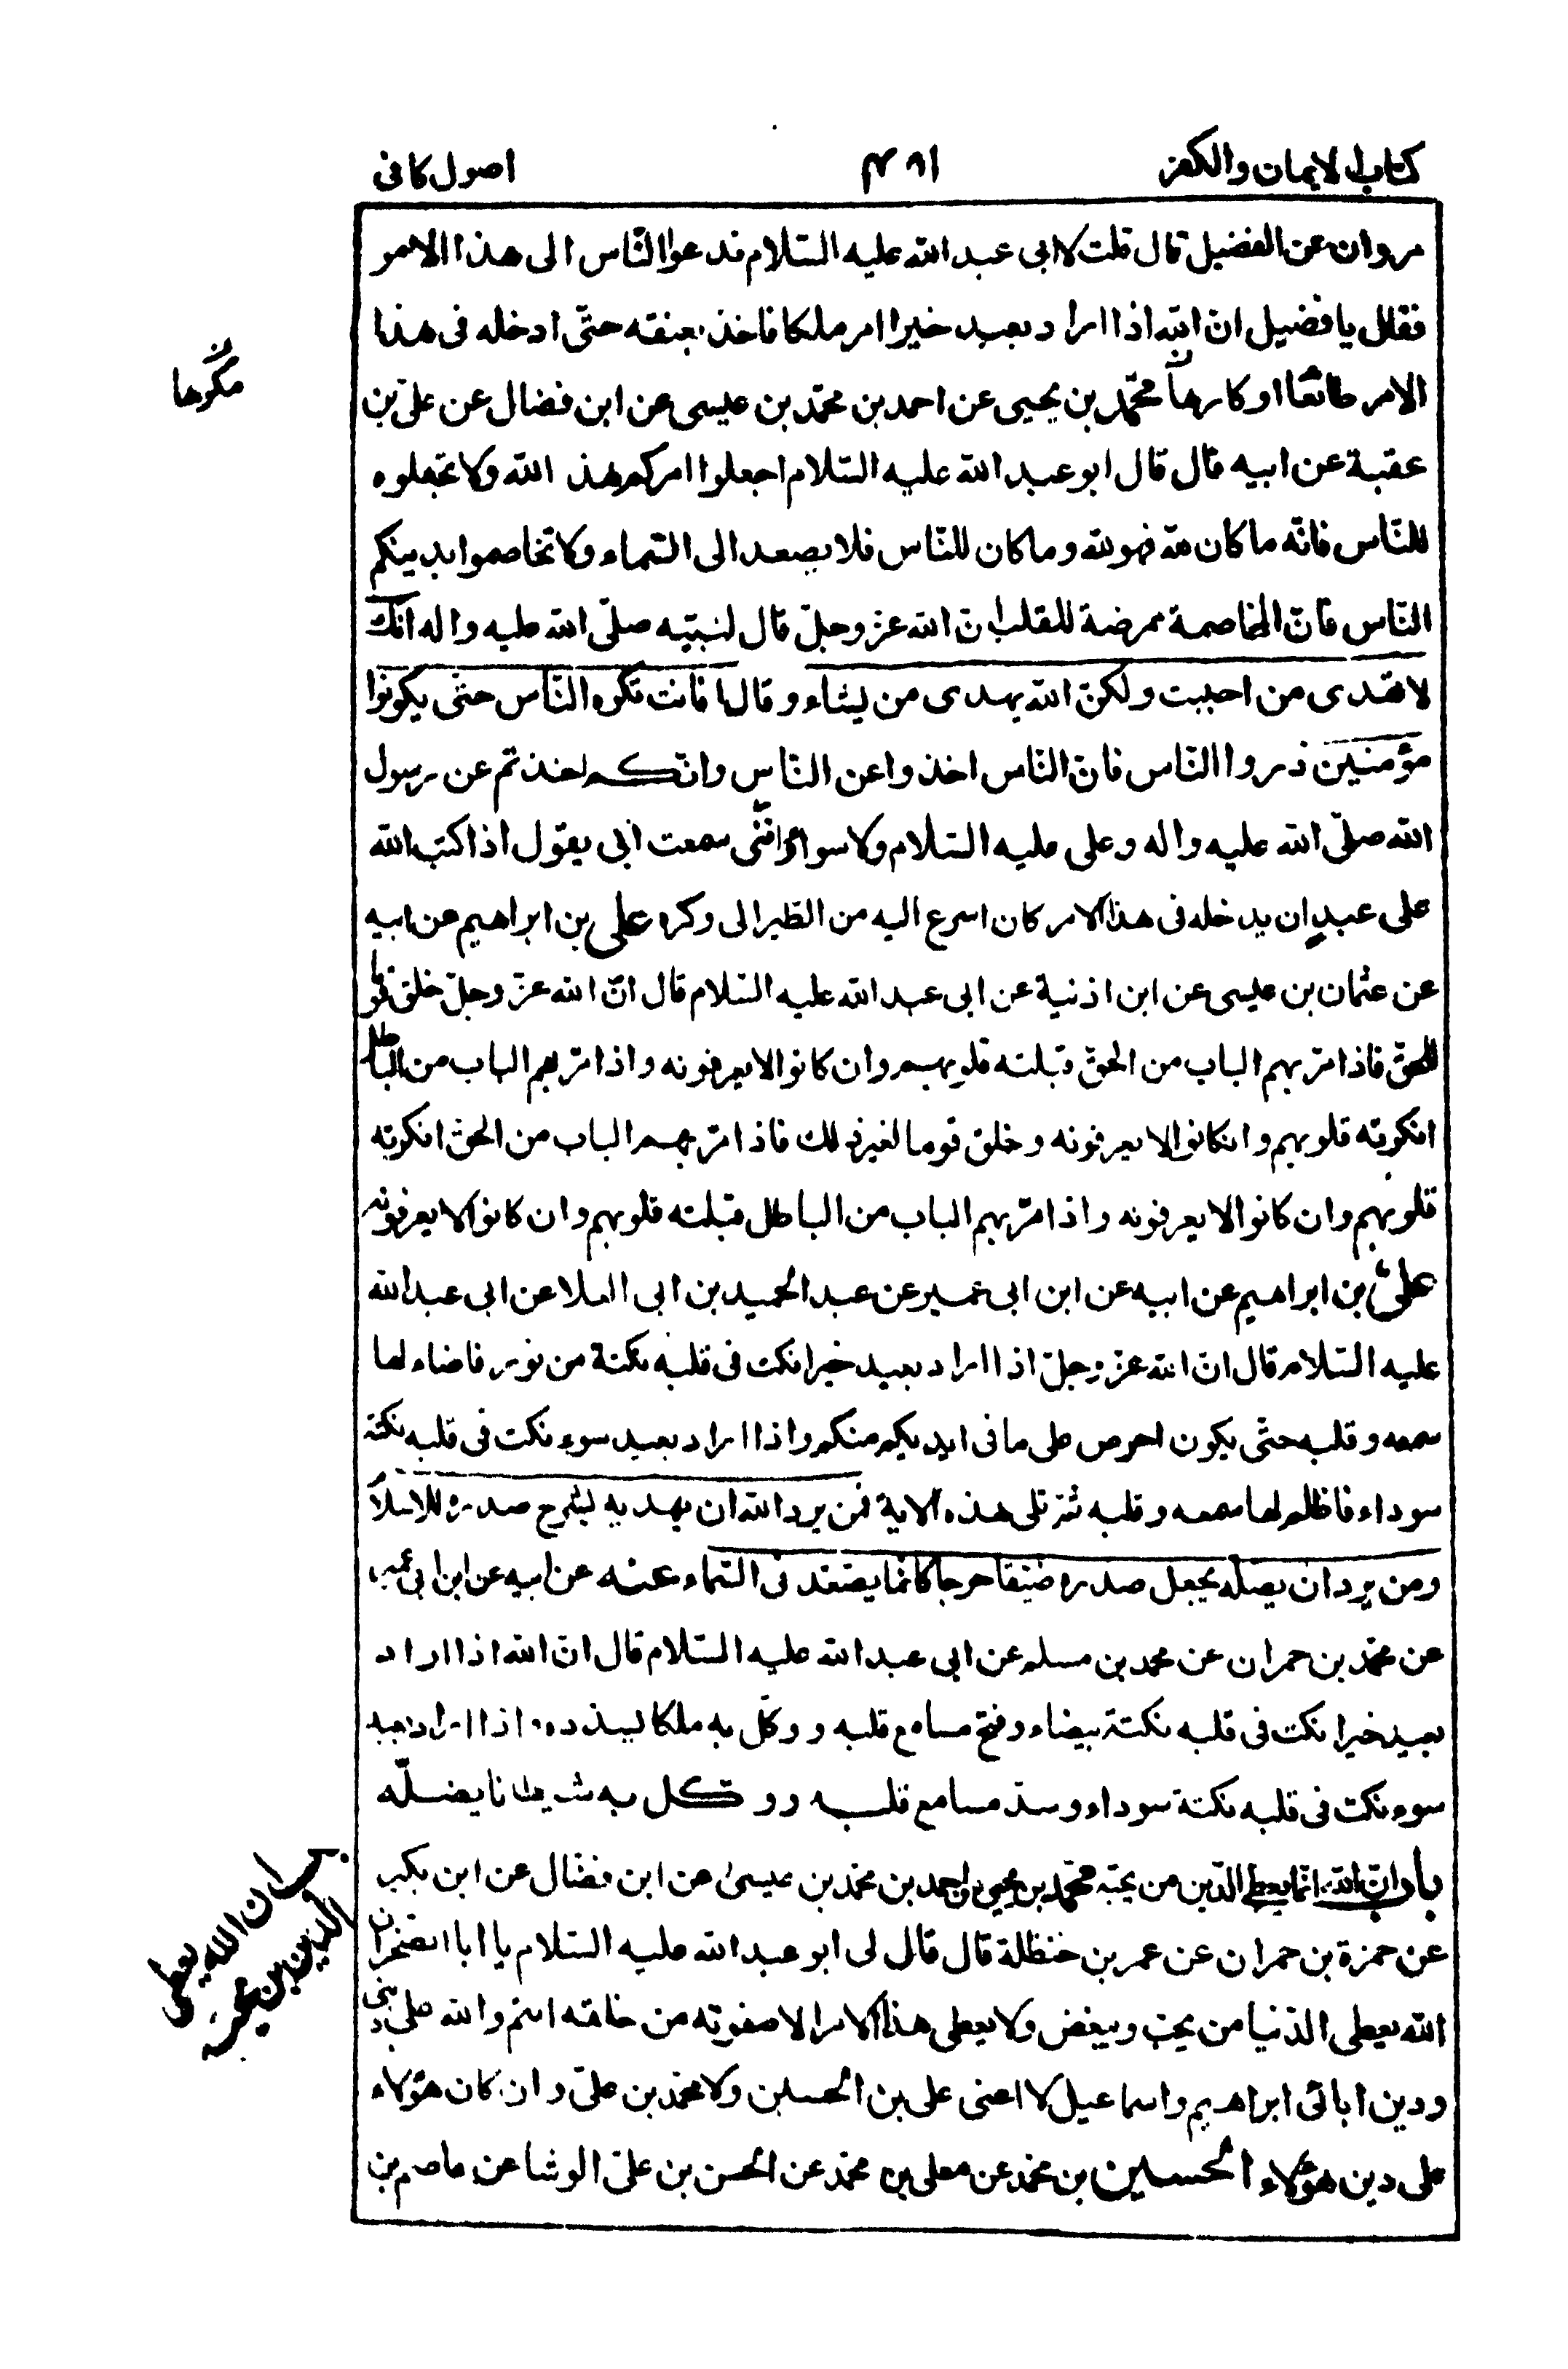 كتاب الايمان والكفر ۴۸۱ اصول كافى
مروان عن الفضيل قال قلت لابى عبد الله عليه السّلام ندعوا النّاس الى هذا الامر
فقال يا فضيل انّ الله اذا اراد بعبد خيرا امر ملكا فاخذ بعنقه حتّى ادخله فى هذا
الامر طائعًا او كارهًا محمّد بن يحيى عن احمد بن محمّد بن عيسى عن ابن فضال عن علىّ بن
مكرها
عقبة عن ابيه قال قال ابو عبد الله عليه السّلام اجعلوا امركم هذا لله ولا تجعلوه
للنّاس فانّه ما كان لله فهو لله وما كان للنّاس فلا يصعد الى السّماء ولا تخاصموا بدينكم
النّاس فانّ المخاصمة ممرضة للقلب ان الله عزّ وجلّ قال لنبيّه صلّى الله عليه واله انّك
لا تهدى من احببت ولكنّ الله يهدى من يشاء وقال افانت تكره النّاس حتّى يكونوا
مؤمنين ذروا النّاس فانّ النّاس اخذوا عن النّاس وانّكم اخذتم عن رسول
الله صلّى الله عليه واله وعلى عليه السّلام ولا سواء وانّنى سمعت ابى يقول اذا كتب الله
على عبد ان يدخله فى هذا الامر كان اسرع اليه من الطّير الى وكره على بن ابراهيم عن ابيه
عن عثمان بن عيسى عن ابن اذنية عن ابى عبد الله عليه السّلام قال انّ الله عزّ وجلّ خلق قوما
للحقّ فاذا مرّ بهم الباب من الحقّ قبلته قلوبهم وان كانوا لا يعرفونه واذا مرّ بهم الباب من الباطل
انكرته قلوبهم وان كانوا لا يعرفونه وخلق قوما لغير ذلك فاذا مرّ بهم الباب من الحقّ انكرته
قلوبهم وان كانوا لا يعرفونه واذا مرّ بهم الباب من الباطل قبلته قلوبهم وان كانوا لا يعرفونه
علىّ بن ابراهيم عن ابيه عن ابن ابى عمير عن عبد الحميد بن ابى العلا عن ابى عبد الله
عليه السّلام قال انّ الله عزّ وجلّ اذا اراد بعبد خيرا نكت فى قلبه نكتة من نور فاضاء لها
سمعه وقلبه حتّى يكون احرص على ما فى ايديكم منكم واذا اراد بعبد سوء نكت فى قلبه نكتة
سوداء فاظلم لها سمعه وقلبه ثمّ تلى هذه الاية فمن يرد الله ان يهديه يشرح صدره للاسلام
ومن يرد ان يضلّه يجعل صدره ضيّقا حرجا كانّما يصّعّد فى السّماء عنه عن ابيه عن ابن ابى عمير
عن محمّد بن حمران عن محمد بن مسلم عن ابى عبد الله عليه السّلام قال انّ الله اذا اراد
بعبد خيرا نكت فى قلبه نكتة بيضاء وفتح مسامع قلبه ووكّل به ملكا يسدده واذا اراد بعبد
سوء نكت فى قلبه نكتة سوداء وسدّ مسامع قلبه ووكّل به شيطانا يضلّه
باب انّ الله انّما يعطى الدّين من يحبّه محمّد بن يحيى عن احمد بن محمّد بن عيسى عن ابن فضّال عن ابن بكير
ان الله يعطى
الدين من
عن حمزة بن حمران عن عمر بن حنظلة قال قال لى ابو عبد الله عليه السّلام يا ابا الصخر ان
الله يعطى الدّنيا من يحبّ ويبغض ولا يعطى هذا الامر الا صفوته من خلقه انتم والله على دينى
ودين ابائى ابراهيم واسماعيل لا اعنى على بن الحسين ولا محمّد بن علىّ وان كان هؤلاء
على دين هؤلاء الحسين بن محمّد عن معلى بن محمّد عن الحسن بن علىّ الوشا عن عاصم بن